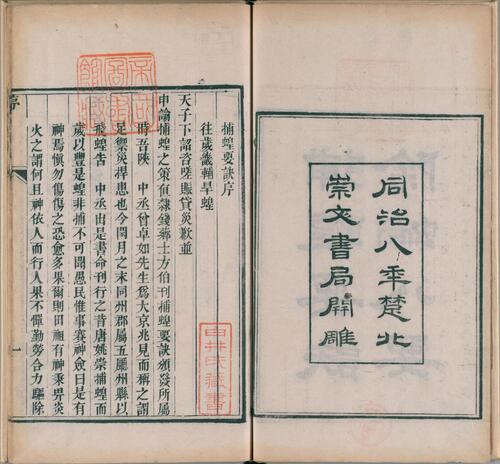 同治八年楚北
崇文書局開雕
捕蝗要訣序
往歲畿輔旱蝗
天子下詔咨嗟賑貸災歉並
申諭捕蝗之策直隸錢藩士方伯刊捕蝗要訣頒發所屬
時吾陝 中丞曾卓如先生為大京兆見而稱之謂
足禦災捍患也今閏月之末同州郡屬五屬州縣以
飛蝗告 中丞由是書命刊行之昔唐姚崇捕蝗而
歲以豐是蝗非捕不可聞愚民惟事賽神僉曰是有
神焉慎勿傷傷之恐愈多果爾則田祖有神秉畀炎
火之謂何且神依人而行人果不憚勤勞合力驅除
序
一
中井氏藏書